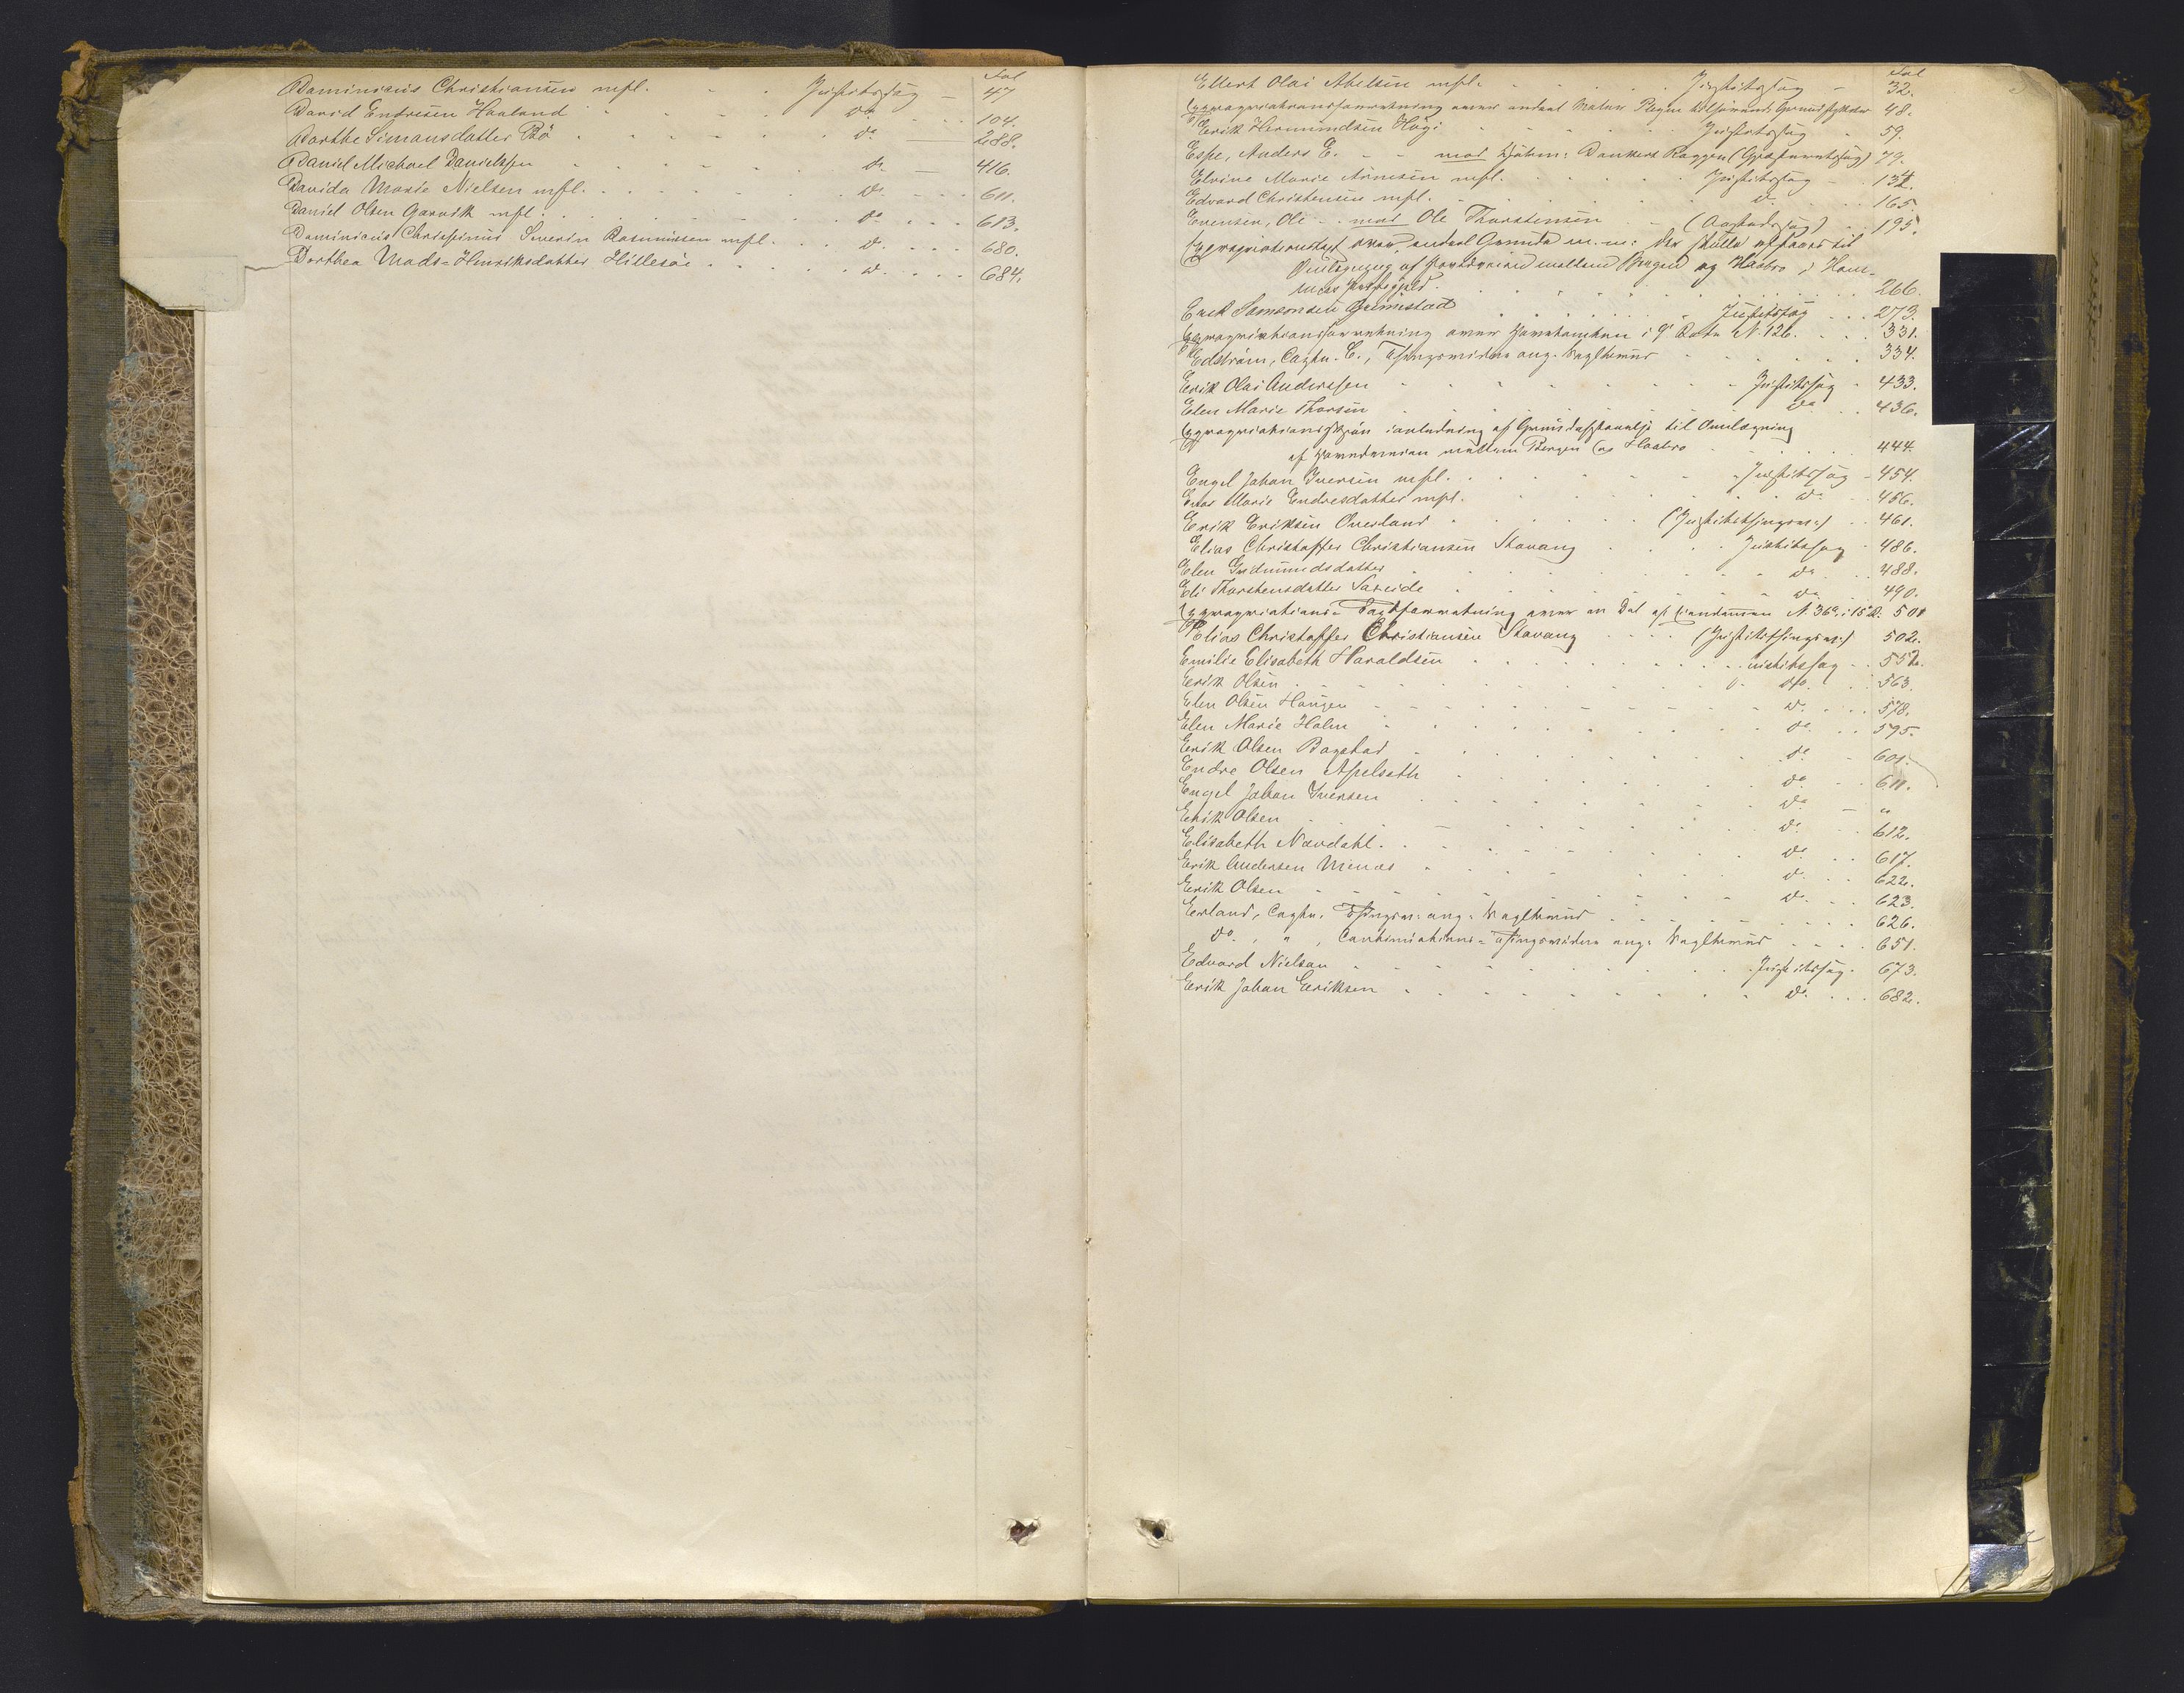 Fol
Dominicus Christiansen mfl. Justitssag 47
David Endresen Haaland do 104.
Dorthe Simonsdatter Bö do 288.
Daniel Michael Danielssen do 416.
Davida Marie Nielsen mfl. do 611.
Daniel Olsen Garvik mfl. do 613.
Dominicus Severin Rasmussen mfl. do 680.
Dorthea Mads-Henriksdatter Hillesöe do 684.
Fol
Ellert Olai Abelsen mfl. Justitssag 32.
Expropriationsforretning over endeel Grundstykker 48.
Erik Hermundsen Högi Justitssag 59.
Espe, Anders E. mod Dankert (Gjæsteretssag) 79.
Elvine Marie Arnesen mfl. Justitssag 134.
Edvard Christensen mfl. do 165.
Evensen, Ole mod Ole Thorstensen (Aastedssag) 195.
Expropriationstaxt over endeel Grunde m.m: der skulle afstaaes til
Omlægning af Hovedveien mellem Bergen og Haabro i Ham-
mers Præstegjeld 266.
Erik Samsonsen Grimstad Justitssag 273.
Expropriationsforretning over i 9de Rode No 126. 331.
Edström, Captn. C., Thingsvidne ang. Vragthund 334.
Erik Olai Anderssen Justitssag 433.
Elen Marie Thorsen do 436.
Expropriationsskjön i anledning af Grundafstaaelse til Omlægning
af Hovedveien mellem Bergen og Haabro 444.
Engel Johan Iversen mfl. Justitssag 454.
Marie Endresdatter mfl. do 456.
Erik Eriksen Overland (Justitsthingsv:) 461.
Elias Christoffer Christiansen Stavang Justitssag 486.
Elen Gudmundsdatter do 488.
Eli Thorstensdatter Sareide do 490.
Expropriations-Taxtforretning over en Del af Eiendommen No 36a, i 15de R. 501
Elias Christoffer Christiansen Stavang (Justitsthingsv:) 502.
Emilie Elisabeth Haraldsen Justitssag 552.
Erik Olsen do 563.
Elen Olsen Haugen do 578.
Elen Marie Holm do 595.
Erik Olsen Bogstad do 601.
Endre Olsen Apelseth do 611.
Engel Johan Iversen do "
Erik Olsen do 612.
Elisabeth Nævdahl. do 617.
Erik Andersen do 622.
Erik Olsen do 623.
Erland, Captn. Thingsv: ang: 626.
do. , " , Continuations-Thingsvidne ang: 651.
Edvard Nielsen Justitssag. 673.
Erik Johan Eriksen do 682.